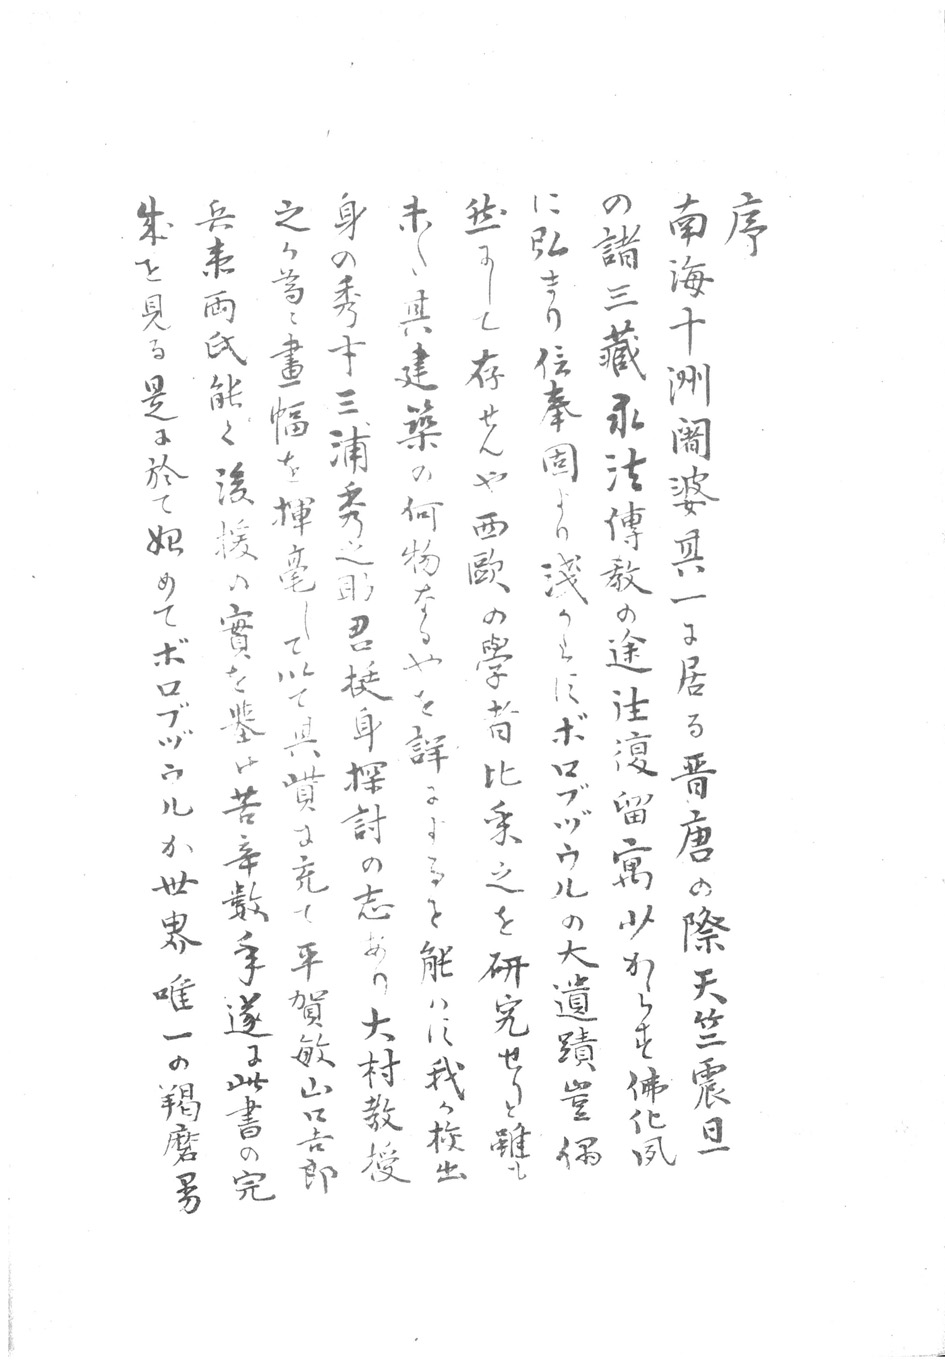 序
南海十洲闍婆其一に居る晋唐の際天竺震旦
の諸三藏求法傳教の途往復留寓少からす佛化夙
に弘まり信奉固より淺からにすボロブヅウルの大遺蹟豈偶
然にして存せんや西歐の學者比來之を研究せりと雖も
未た其建築の何物なるやを詳にするを能はす我か校出
身の秀才三浦秀之助君挺身探討の志あり大村教授
之か為に畫幅を揮毫して以て其貲に充て平賀敏山口吉郎
兵衞両氏能く後援の實を擧け苦辛數年遂に此書の完
成を見る是に於て始めてボロブヅウルか世界唯一の羯磨曼